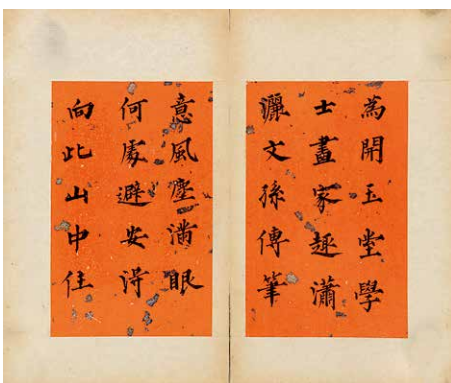 為開玉堂學
士畫家趣瀟
灑文孫傳筆
意風塵滿眼
何處避安得
向此山中住